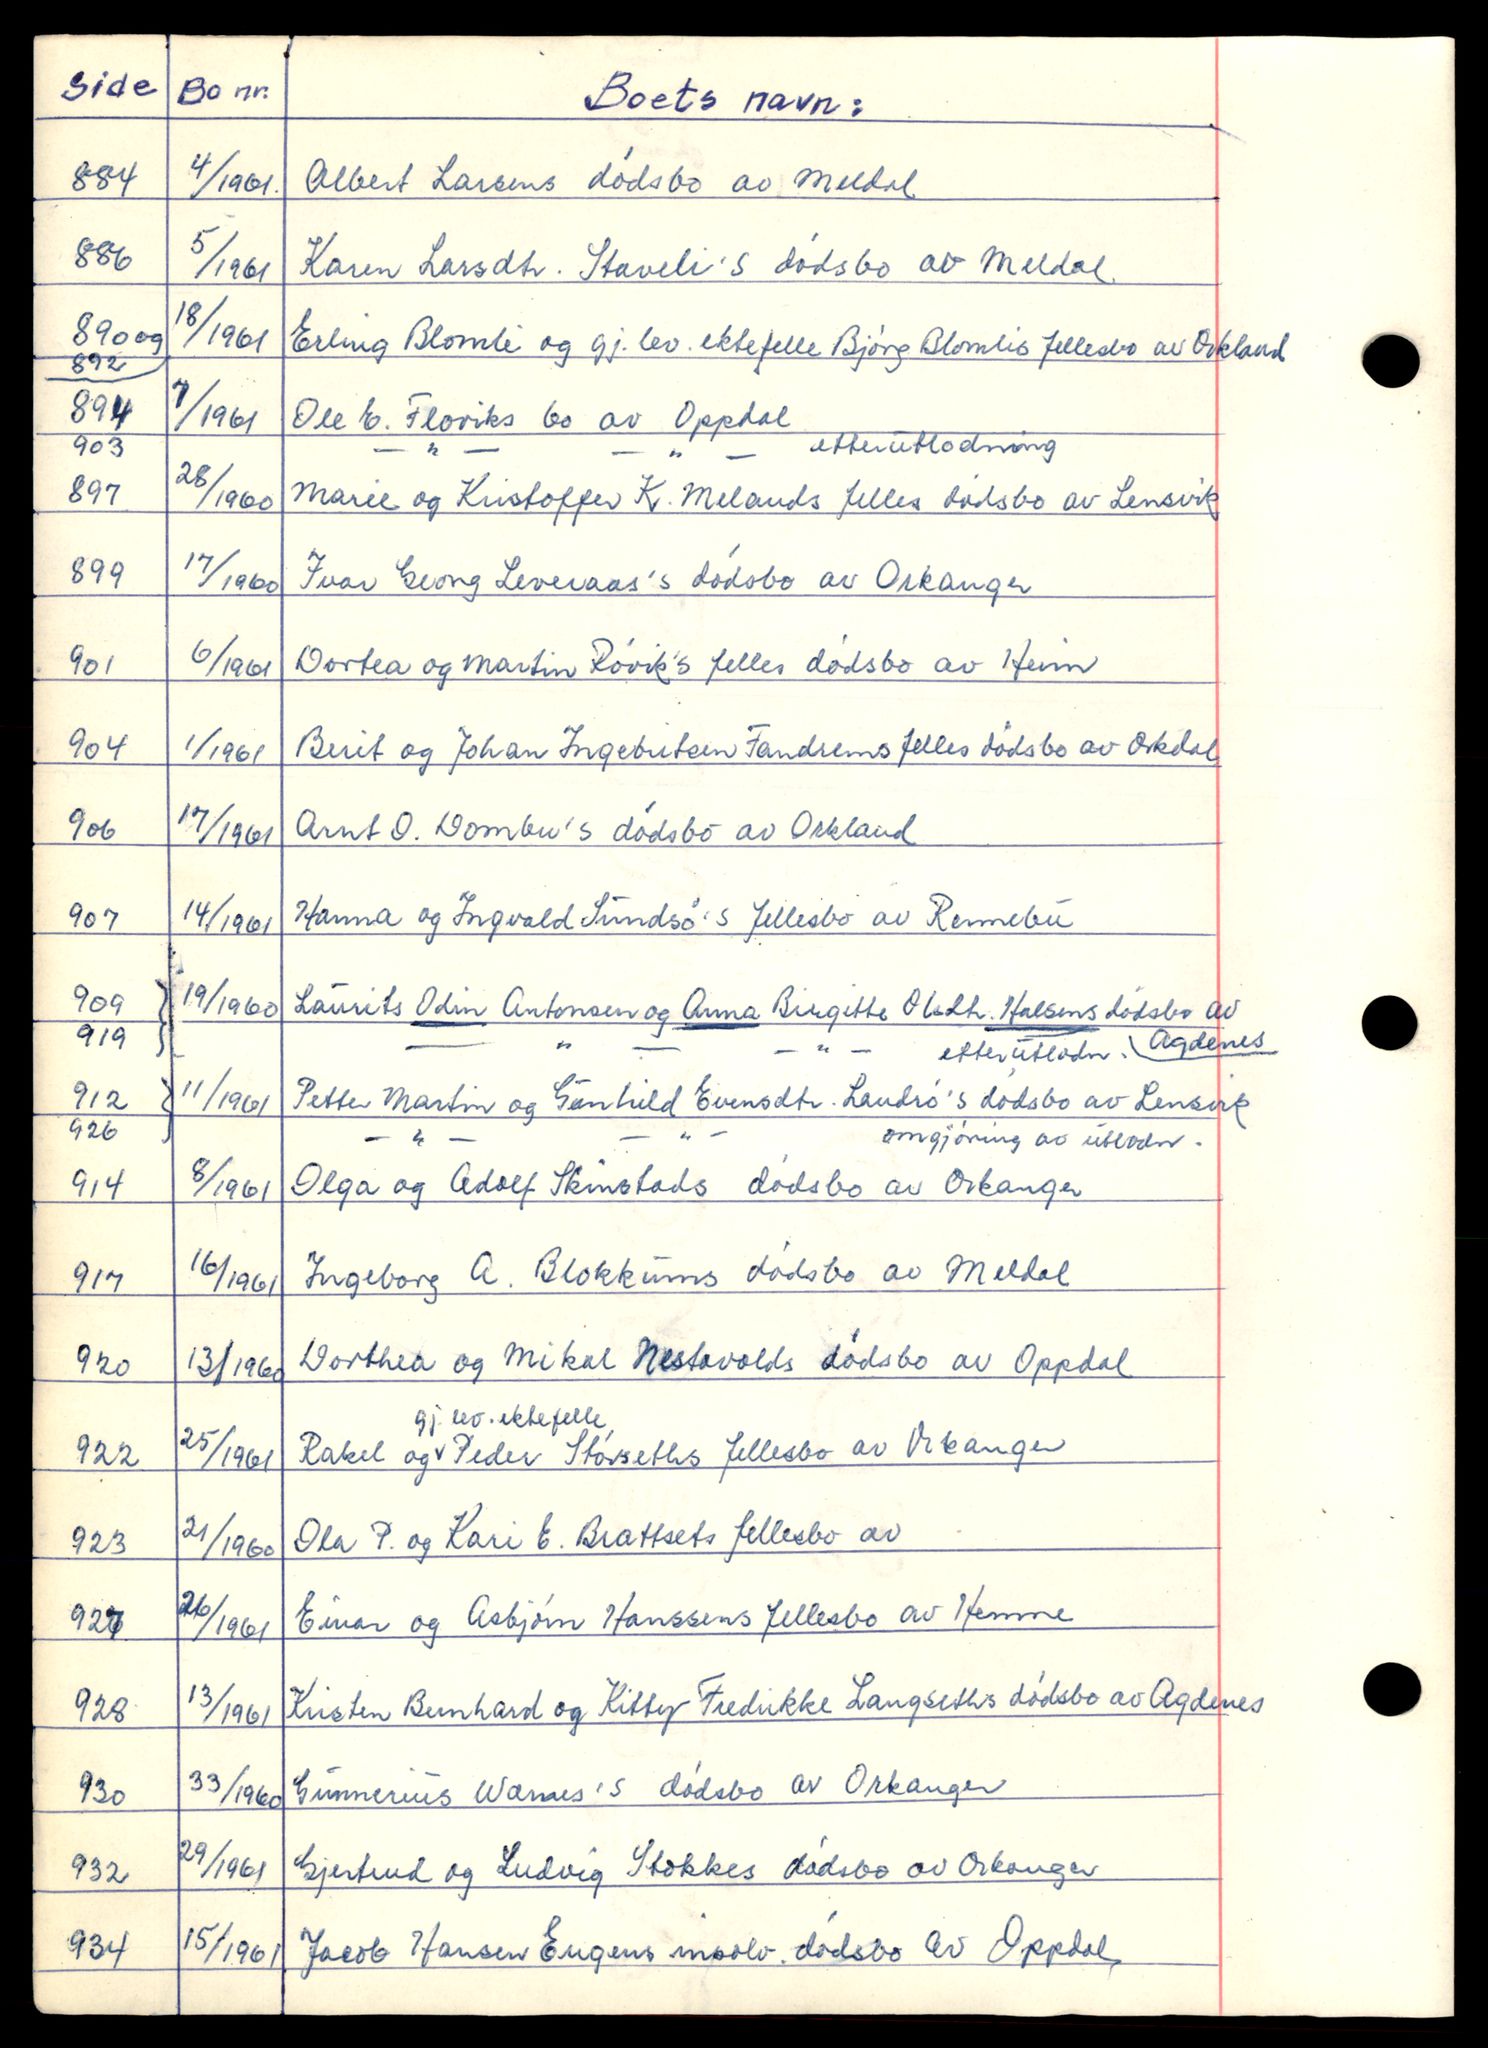 Side Bo nr. Boets navn:
884 4/1961. Albert Larsens dódsbo av Meldal
886 5/1961 Karen Larsdtr. Staveli's dódsbo av Meldal
890 og 18/1961 Erling Blomli og gj. lev. ektefelle Bjórg Blomlis fellesbo av Orkland
892
894 7/1961 Ole E. Floviks bo av Oppdal
903 — " — — " — etterutlodning
897 28/1960 Marie og Kristoffer K. Melands felles dódsbo av Lensvik
899 17/1960 Ivar Georg Leveraas's dódsbo av Orkanger
901 6/1961 Dortea og Martin Róvik's felles dódsbo av Heim
904 1/1961 Berit og Johan Ingebritsen Fandrems felles dódsbo av Orkdal
906 17/1961 Arnt O. Dombu's dódsbo av Orkland
907 14/1961 Hanna og Ingvald Sundsó's fellesbo av Rennebu
909 19/1960 Laurits Odin Antonsen og Anna Birgitte Olsdtr. Halsens dódsbo av
919 — " — — " — etterutlodn. Agdenes
912 11/1961 Petter Martin og Gunhild Evensdtr. Landró's dódsbo av Lensvik
926 — " — — " — omgjóring av utlodn.
914 8/1961 Olga og Adolf Skinstads dódsbo av Orkanger
917 16/1961 Ingeborg A. Blokkums dódsbo av Meldal
920 13/1960 Dorthea og Mikal Nestavolds dódsbo av Oppdal
gj. lev. ektefelle
922 25/1961 Rakel og Peder Stórseths fellesbo av Orkanger
923 21/1960 Ola P. og Kari E. Brattsets fellesbo av
927 26/1961 Einar og Asbjórn Hanssens fellesbo av Hemne
928 13/1961 Kristen Bernhard og Kitty Fredrikke Langseths dódsbo av Agdenes
930 33/1960 Gunnerius Warnes's dódsbo av Orkanger
932 29/1961 Gjertrud og Ludvig Stokkes dódsbo av Orkanger
934 15/1961 Jacob Hansen Engens insolv. dódsbo av Oppdal